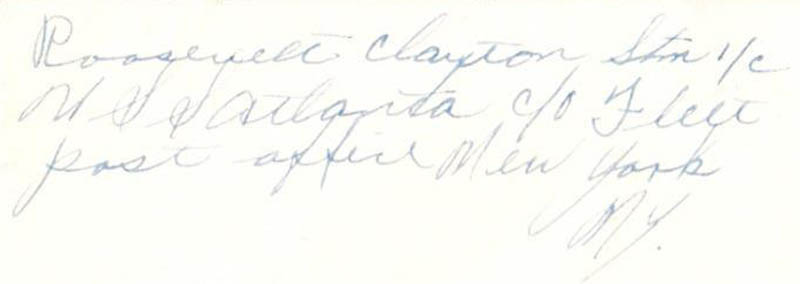 Roosevelt Clayton Stm 1/c
U S S Atlanta c/o Fleet
post office New York
N.Y.